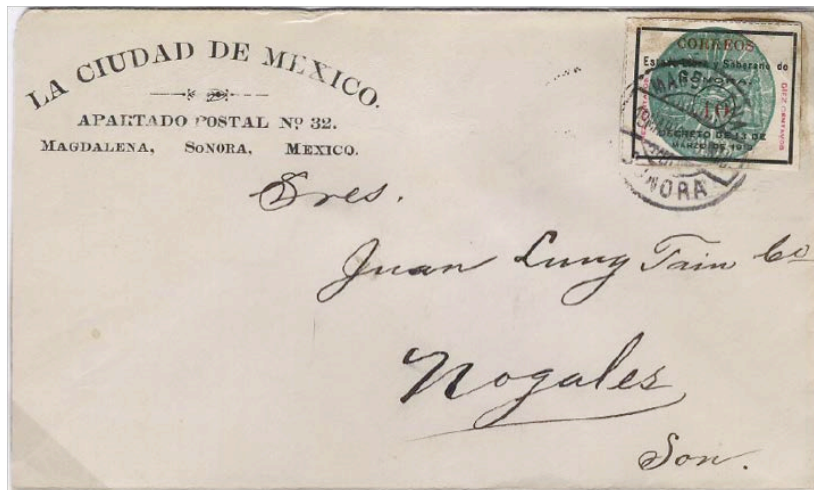 LA CIUDAD DE MEXICO.
APARTADO POSTAL Nº 32.
MAGDALENA, SONORA, MEXICO.
CORREOS
Estado Libre y Soberano de
SONORA
10
DIEZ CENTAVOS
DECRETO DE 13 DE
MARZO DE 1913
SONORA
Sres.
Juan Lung Tain Co
Nogales
Son.